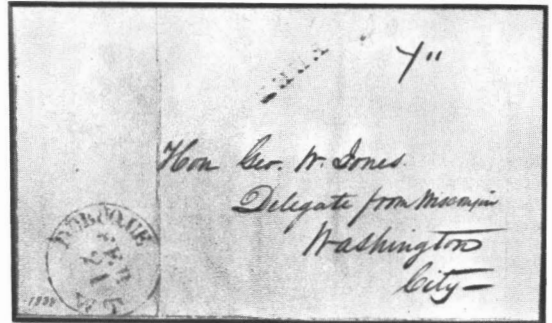 FREE
4"
Hon Geo. W. Jones.
Delegate from Wisconsin
Washington
City—
DUBUQUE
FEB
21
1838